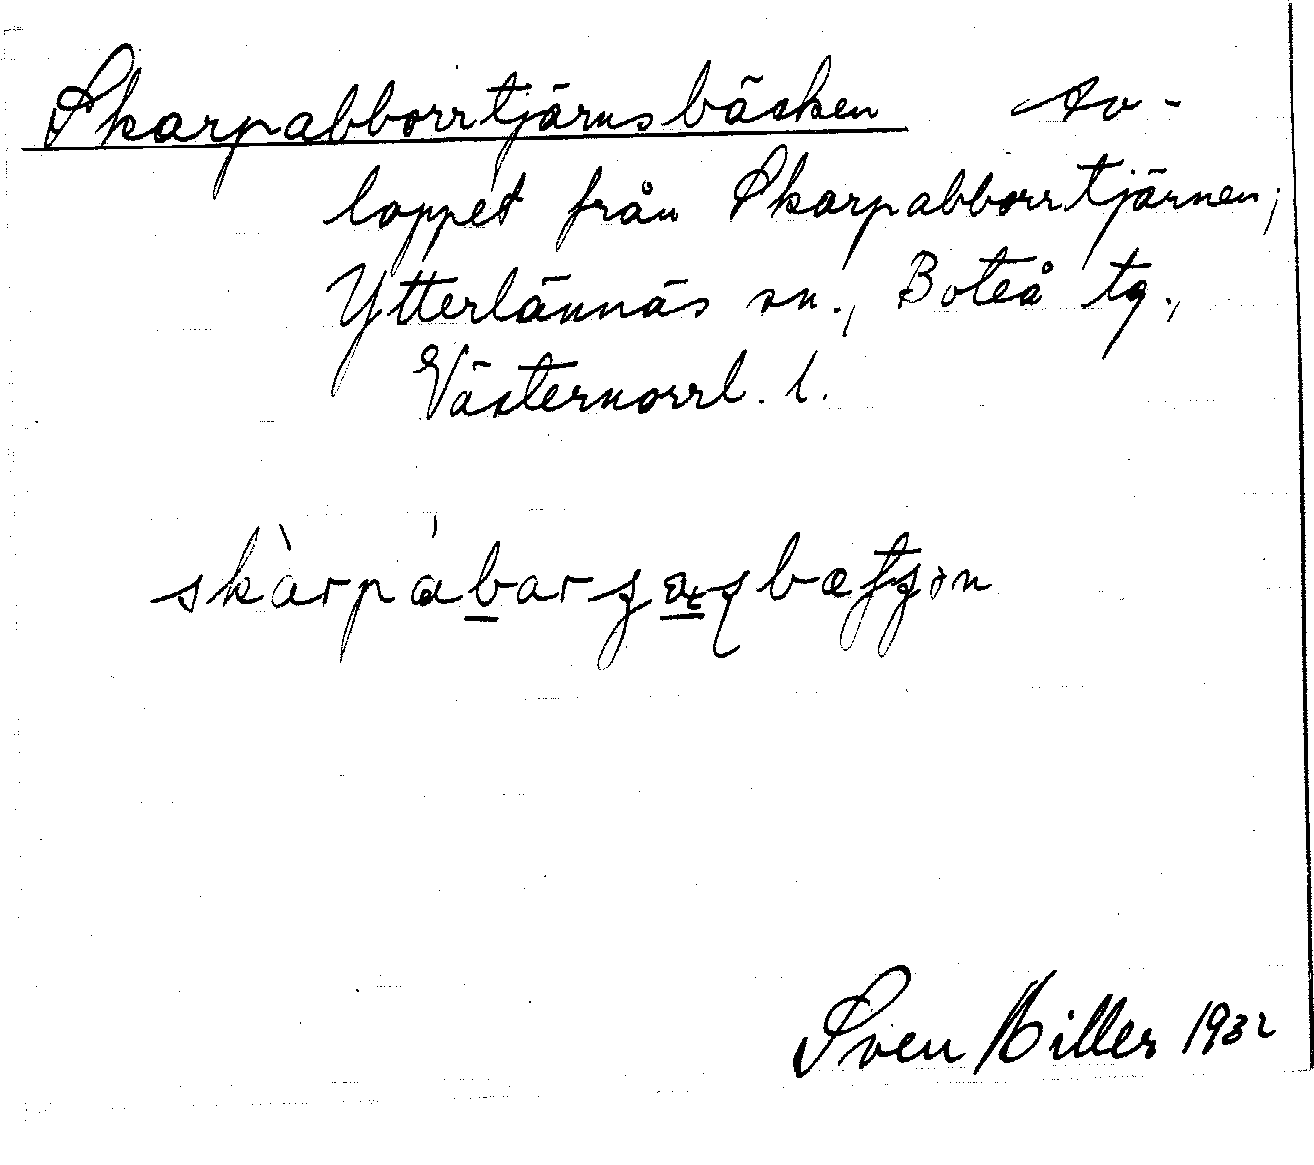 Skarpabborrtjärnsbäcken Av-
loppet från Skarpabborrtjärnen;
Ytterlännäs sn., Boteå tg.,
Västernorrl. l.
Sven Hiller 1932